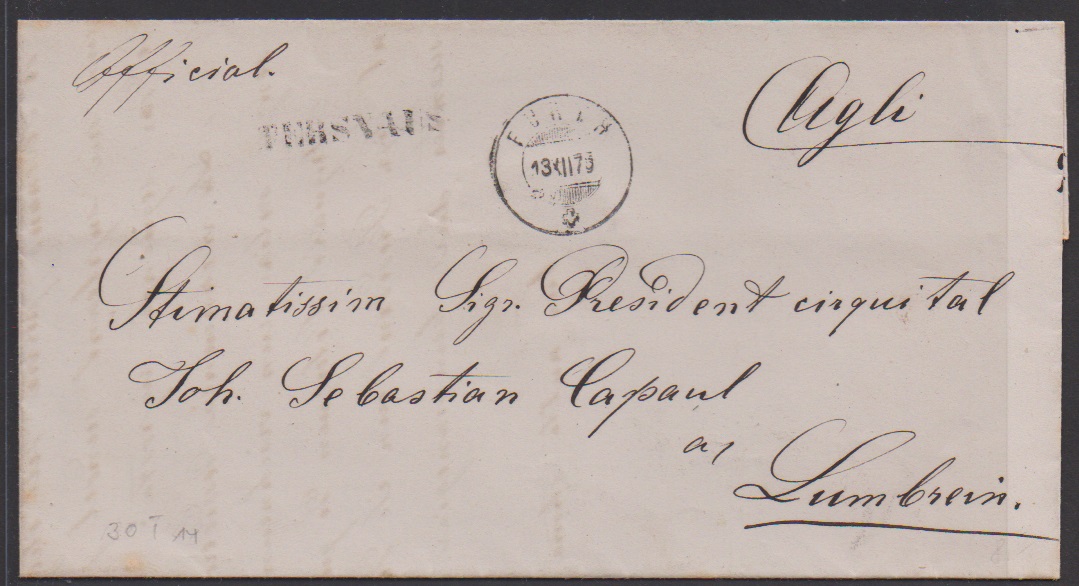 Official.
TERSNAUS
FURTH
13 XII 73
Agli
Stimatissim Sigr. President cirquital
Joh. Sebastian Capaul
a,
Lumbrein.
30 T 14